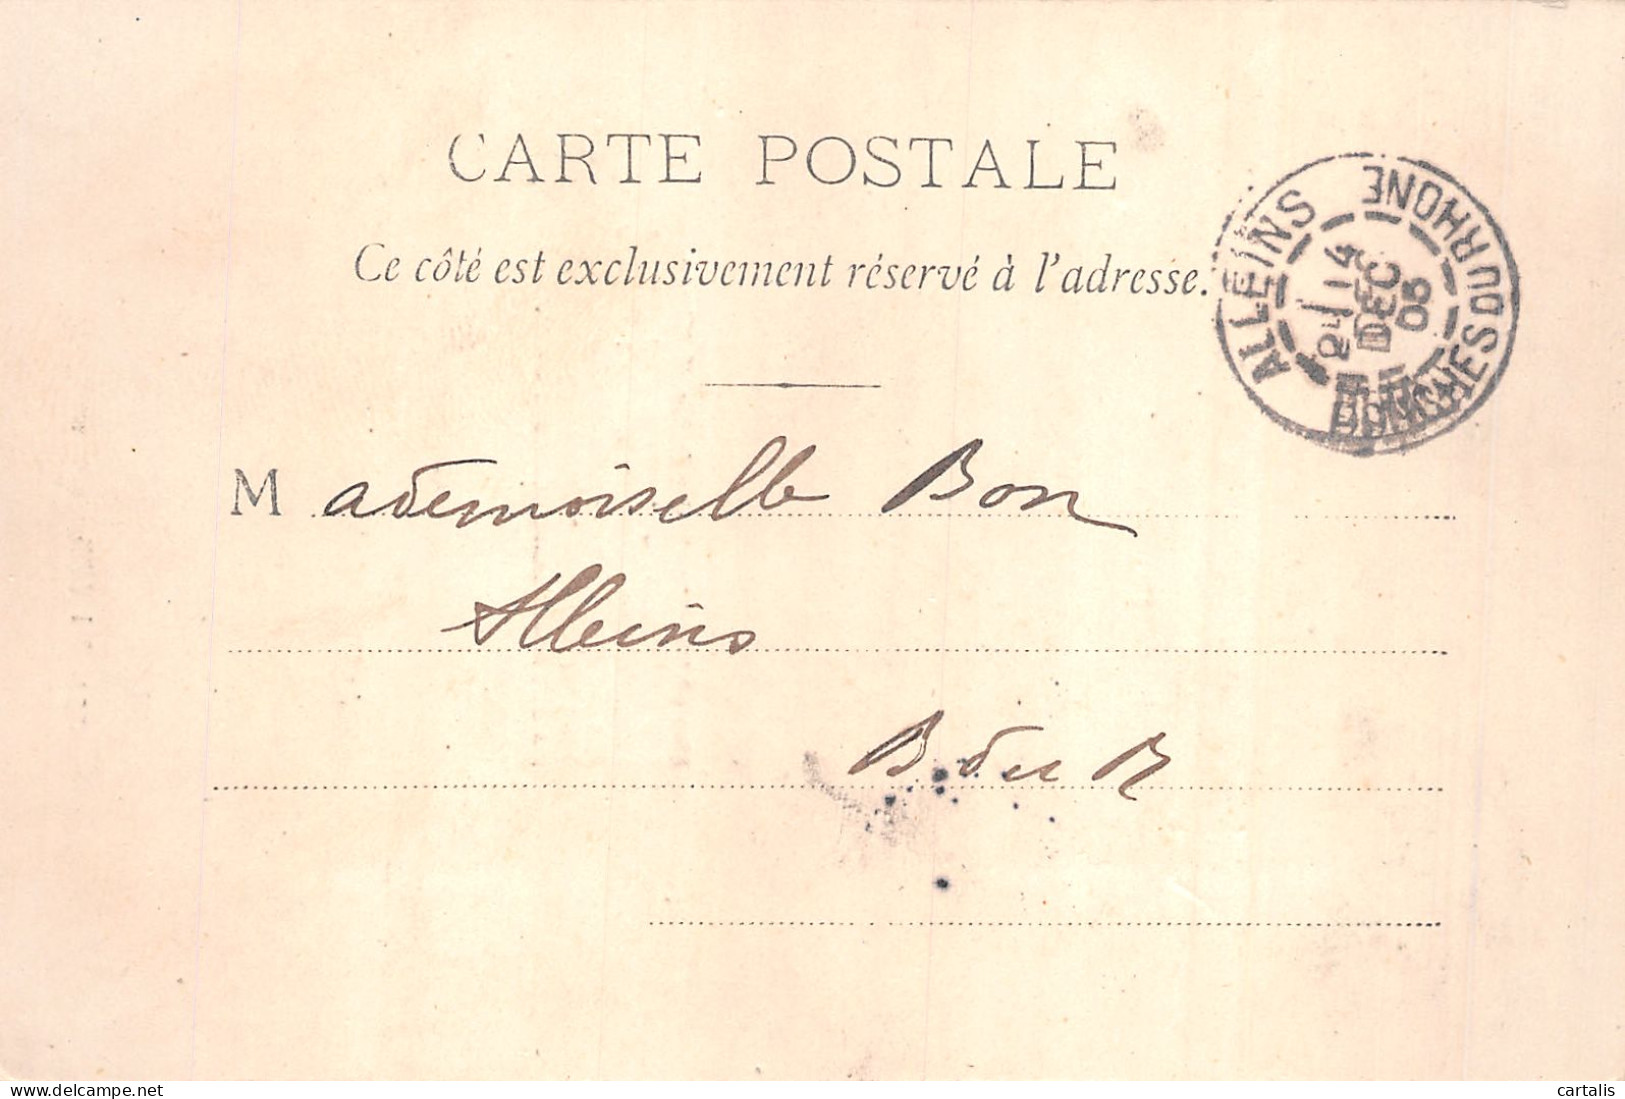 CARTE POSTALE
Ce côté est exclusivement réservé à l'adresse.
ALLEINS
BOUCHES DU RHONE
14
DEC
05
Mademoiselle Bon
Alleins
B du R
delcampe.net
cartalis